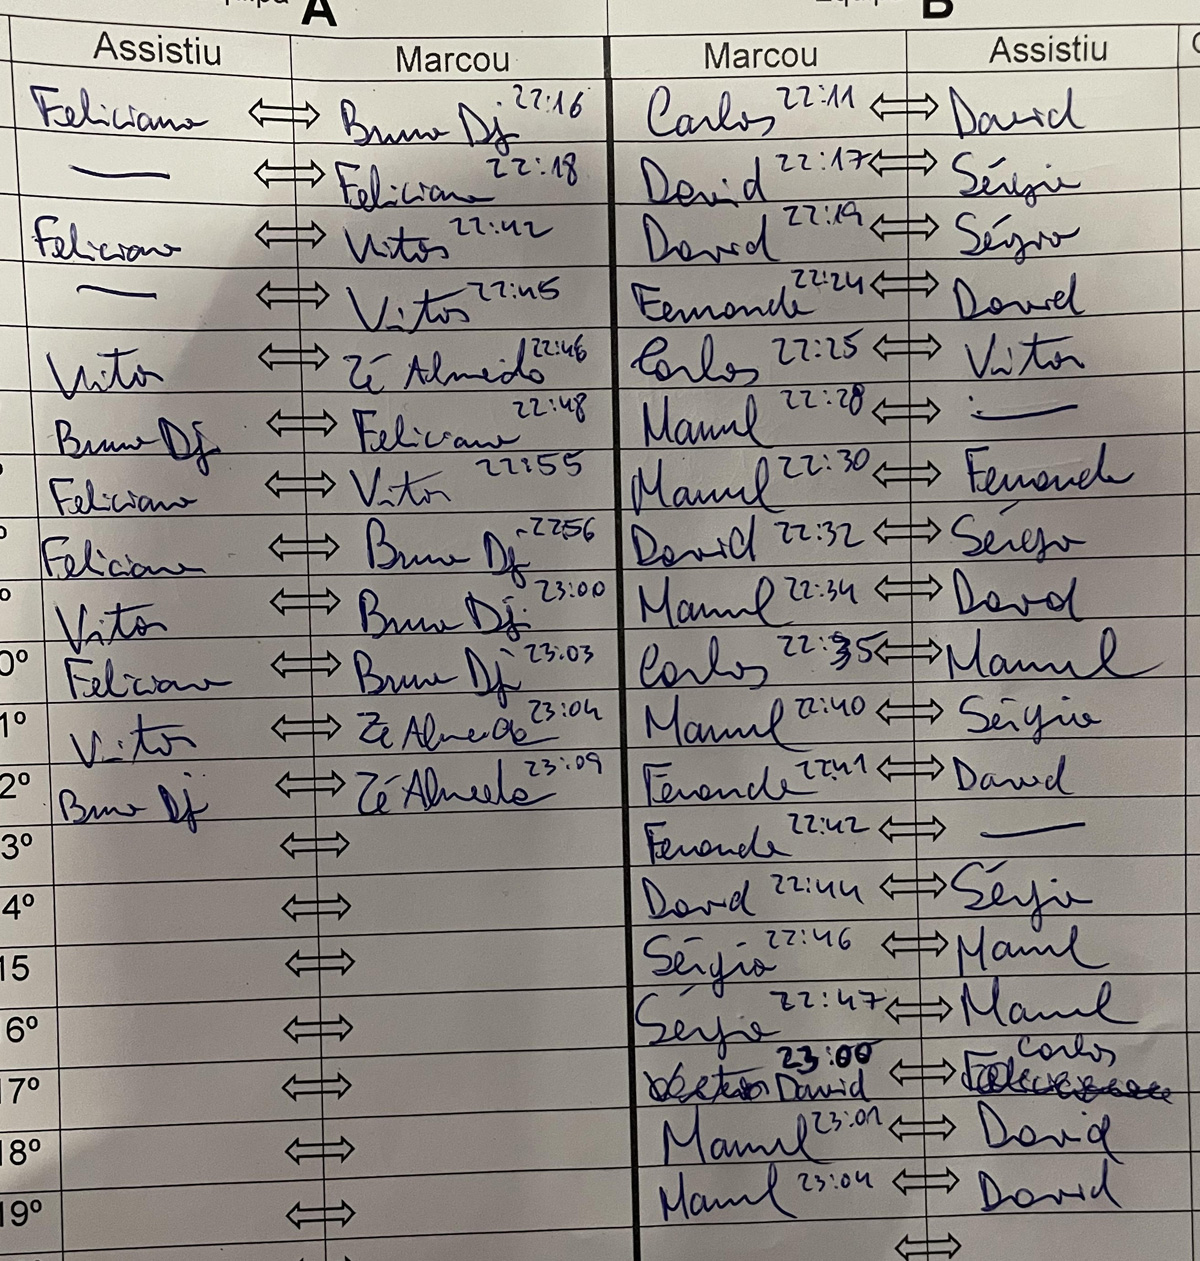 A B
Assistiu Marcou Marcou Assistiu
Feliciano Bruno Dj 22:16 Carlos 22:11 David
— Feliciano 22:18 David 22:17 Sérgio
Feliciano Vitor 22:42 David 22:19 Sérgio
— Vitor 22:45 Fernando 22:24 David
Vitor Zé Almeida 22:46 Carlos 22:25 Vitor
Bruno Dj Feliciano 22:48 Manuel 22:28 —
Feliciano Vitor 22:55 Manuel 22:30 Fernando
Feliciano Bruno Dj 22:56 David 22:32 Sérgio
Vitor Bruno Dj 23:00 Manuel 22:34 David
0º Feliciano Bruno Dj 23:03 Carlos 22:35 Manuel
1º Vitor Zé Almeida 23:04 Manuel 22:40 Sérgio
2º Bruno Dj Zé Almeida 23:09 Fernando 22:41 David
3º Fernando 22:42 —
4º David 22:44 Sérgio
15 Sérgio 22:46 Manuel
6º Sérgio 22:47 Manuel
17º David 23:00 Carlos
18º Manuel 23:01 David
19º Manuel 23:04 David